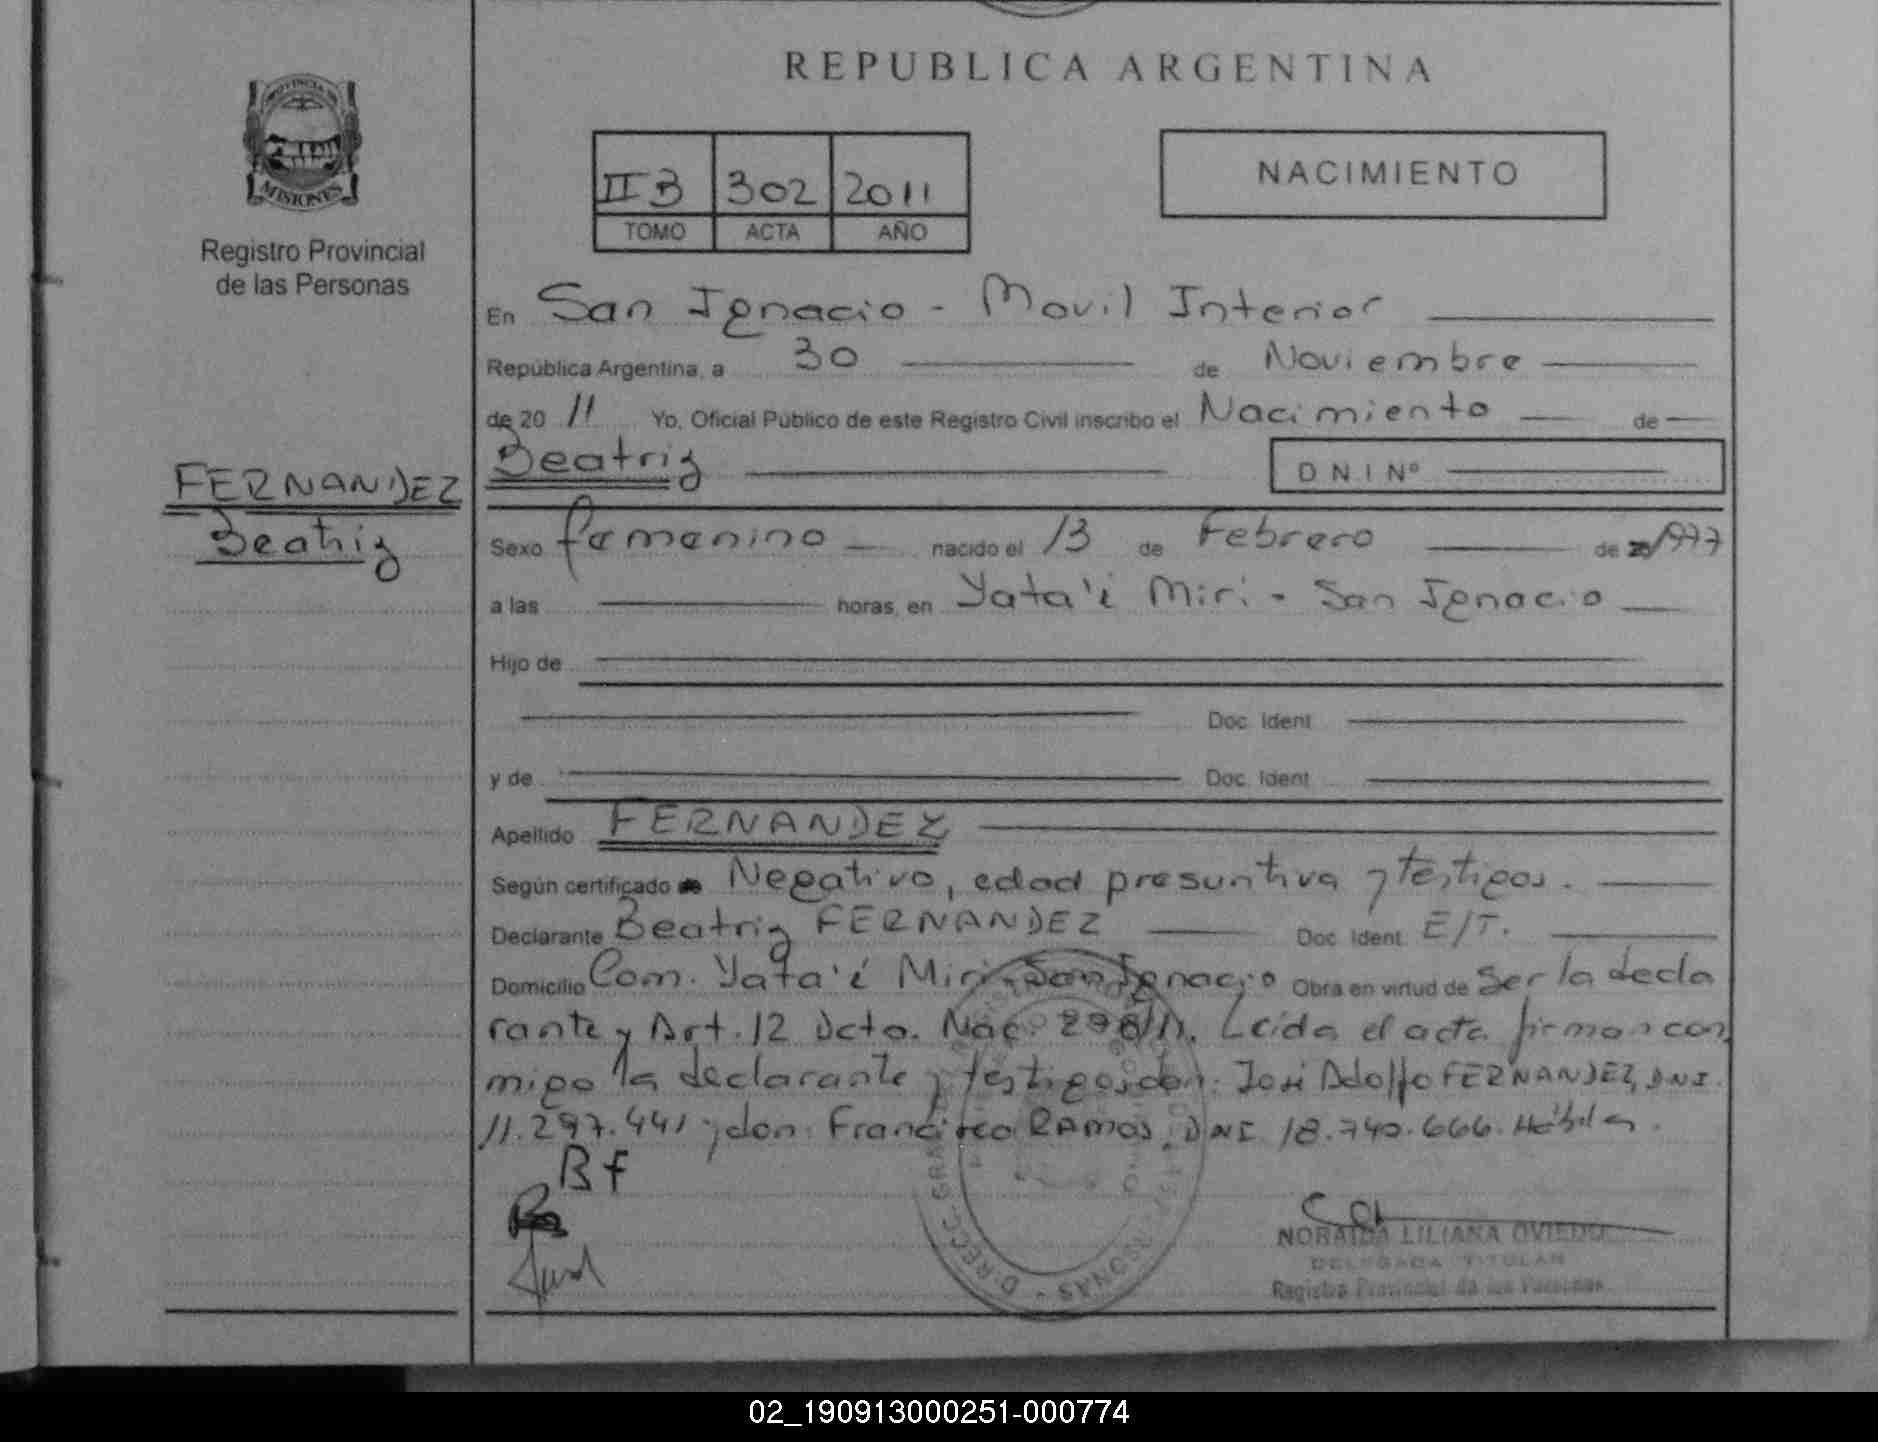 REPUBLICA ARGENTINA
PROVINCIA DE
MISIONES
Registro Provincial
de las Personas
II B 302 2011
TOMO ACTA AÑO
NACIMIENTO
En San Ignacio - Movil Interior
República Argentina, a 30 de Noviembre
de 20 11 Yo, Oficial Público de este Registro Civil inscribo el Nacimiento de
Beatriz D N I Nº
FERNANDEZ
Beatriz
Sexo femenino nacido el 13 de Febrero de 1977
a las horas, en Yata'i Miri - San Ignacio
Hijo de
Doc. Ident
y de Doc. Ident
Apellido FERNANDEZ
Según certificado Negativo, edad presuntiva y testigos.
Declarante Beatriz FERNANDEZ Doc. Ident. E/T.
Domicilio Com. Yata'i Miri - San Ignacio Obra en virtud de Ser la decla
rante y Art. 12 Dcto. Nac. Leida el acta firman con
migo la declarante y testigos don: José Adolfo FERNANDEZ, DNI
11.297.441 y don Francisco RAMOS, DNI 18.740.666. Hábiles.
Bf
NORAIDA LILIANA OVIEDO
DELEGADA TITULAR
Registro Provincial de las Personas
02_190913000251-000774